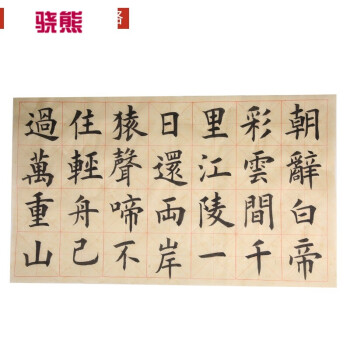 骁熊
朝辭白帝
彩雲間千
里江陵一
日還両岸
猿聲啼不
住輕舟已
過萬重山